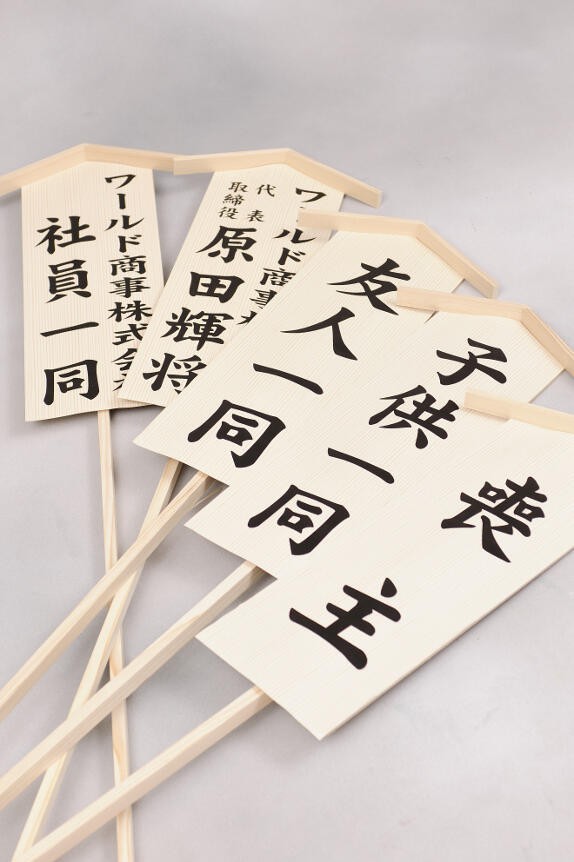 ワールド商事株式会社
社員一同
ワールド商事株
代表
取締役
原田輝将
友人一同
子供一同
喪主